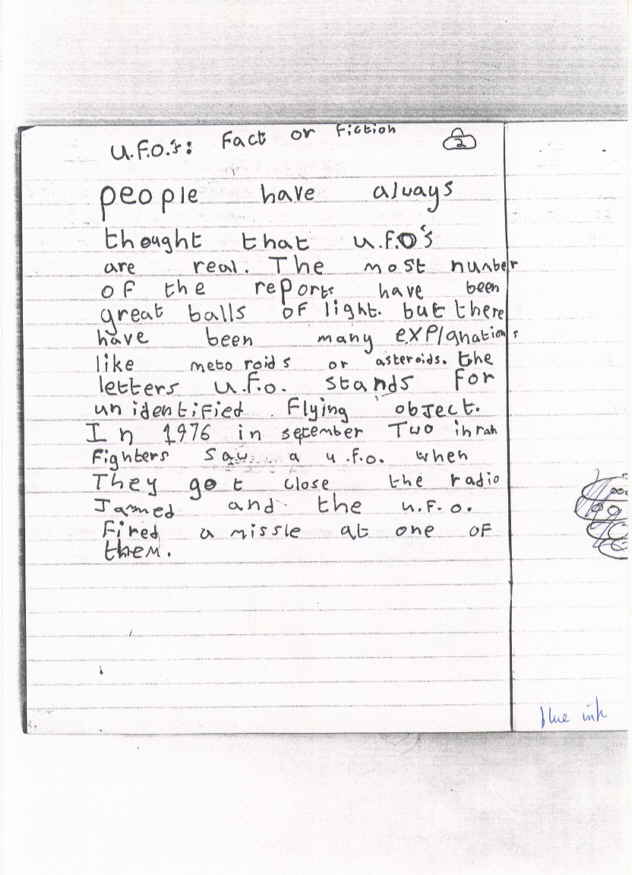 U.F.O.'s: Fact or Fiction
2
people have always
thought that U.F.O'S
are real. The most number
of the reports have been
great balls of light. but there
have been many explanations
like meto roids or asteroids. the
letters U.F.O. stands for
un identified Flying object.
In 1976 in secember Two
Fighters Saw a U.F.O. when
They got close the radio
Jamed and the U.F.O.
Fired a missle at one of
them.
blue ink